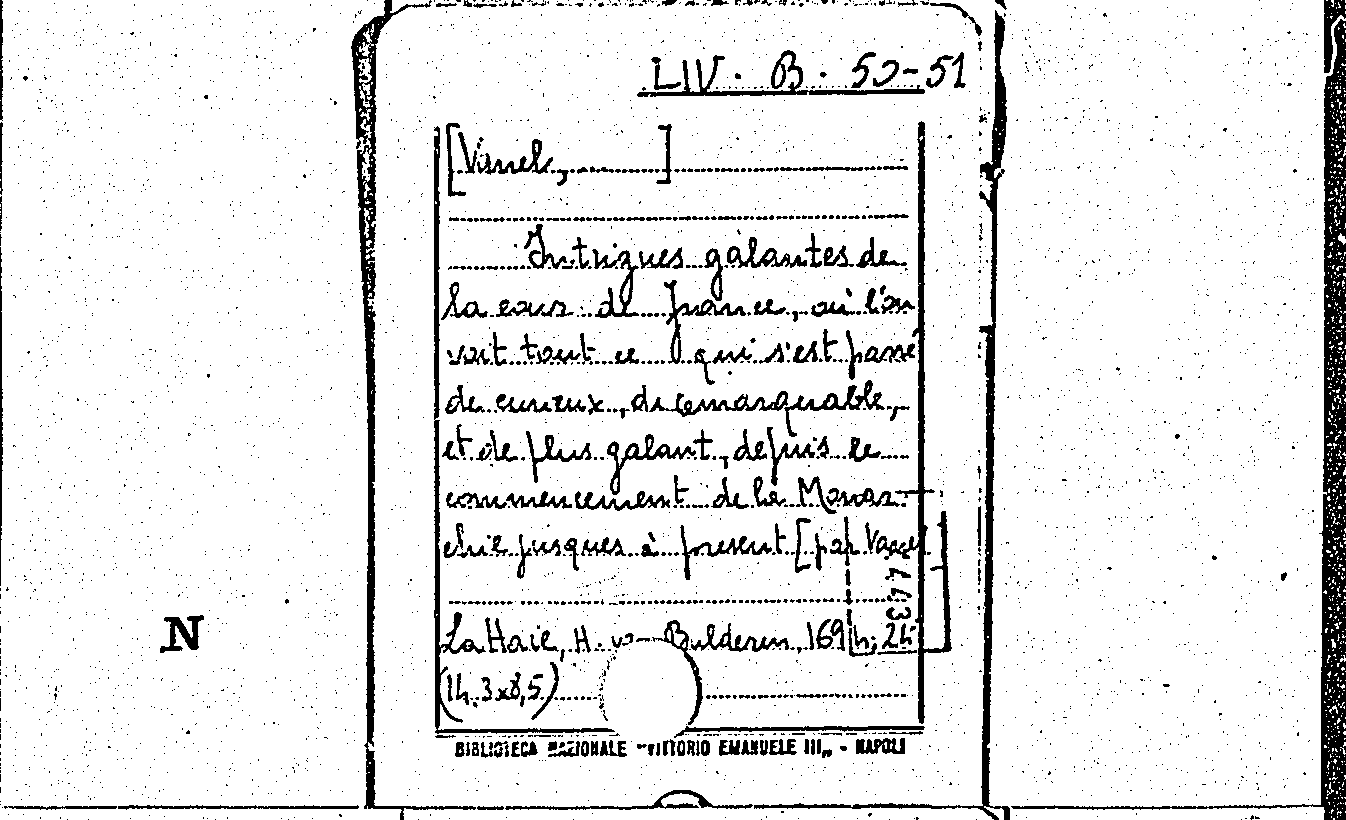 LIV. B. 50-51
[Vanel, ....... ]
Intrigues galantes de
la cour de France, où l'on
voit tout ce qui s'est passé
de curieux, de remarquable,
et de plus galant, depuis le
commencement de la Monar-
chie jusques à present [par Vanel]
443
La Haie, H. van Bulderen, 1694; 24º
(14,3x8,5)
N
BIBLIOTECA NAZIONALE "VITTORIO EMANUELE III„ - NAPOLI